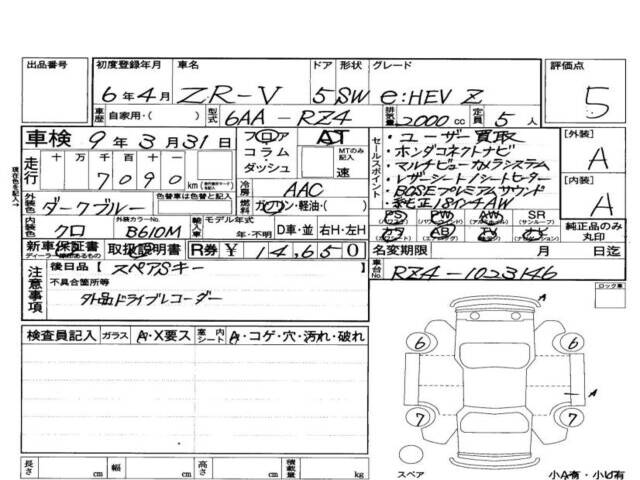 出品番号 初度登録年月 車名 ドア 形状 グレード 評価点
6年4月 ZR-V 5 SW e:HEV Z 5
車歴 自家用・( ) 型式 6AA-RZ4 排気量 2000 cc 定員 5人
車検 9年3月31日 フロア・コラム・ダッシュ AT
MTのみ記入 速
走行 十 万 千 百 十 一
7090 km
現在色を記入→
冷房 AAC
外装色 ダークブルー 色替車は色替前色 燃料 ガソリン・軽油・( )
内装色 クロ 外装カラーNo. B610M 輸入車 モデル年式 年・不明 D車・並 右H・左H
新車保証書 ディーラー 取扱説明書 R券 ¥14,650
セールスポイント
・ユーザー買取
・ホンダコネクトナビ
・マルチビューカメラシステム
・レザーシート/シートヒーター
・BOSEプレミアムサウンド
・純正18インチAW
PS PW AW SR
(サンルーフ)
純正品のみ丸印
[外装] A
[内装] A
名変期限 月 日迄
車台No. RZ4-1023146
注意事項
後日品 [スペアSキー ]
不具合箇所等
外品ドライブレコーダー
ロック車
検査員記入 ガラス A・X要ス 室内シート A・コゲ・穴・汚れ・破れ
A
6 6
A
7 7
スペア 小A有・小U有
長さ cm 幅 cm 高さ cm 積載量 kg